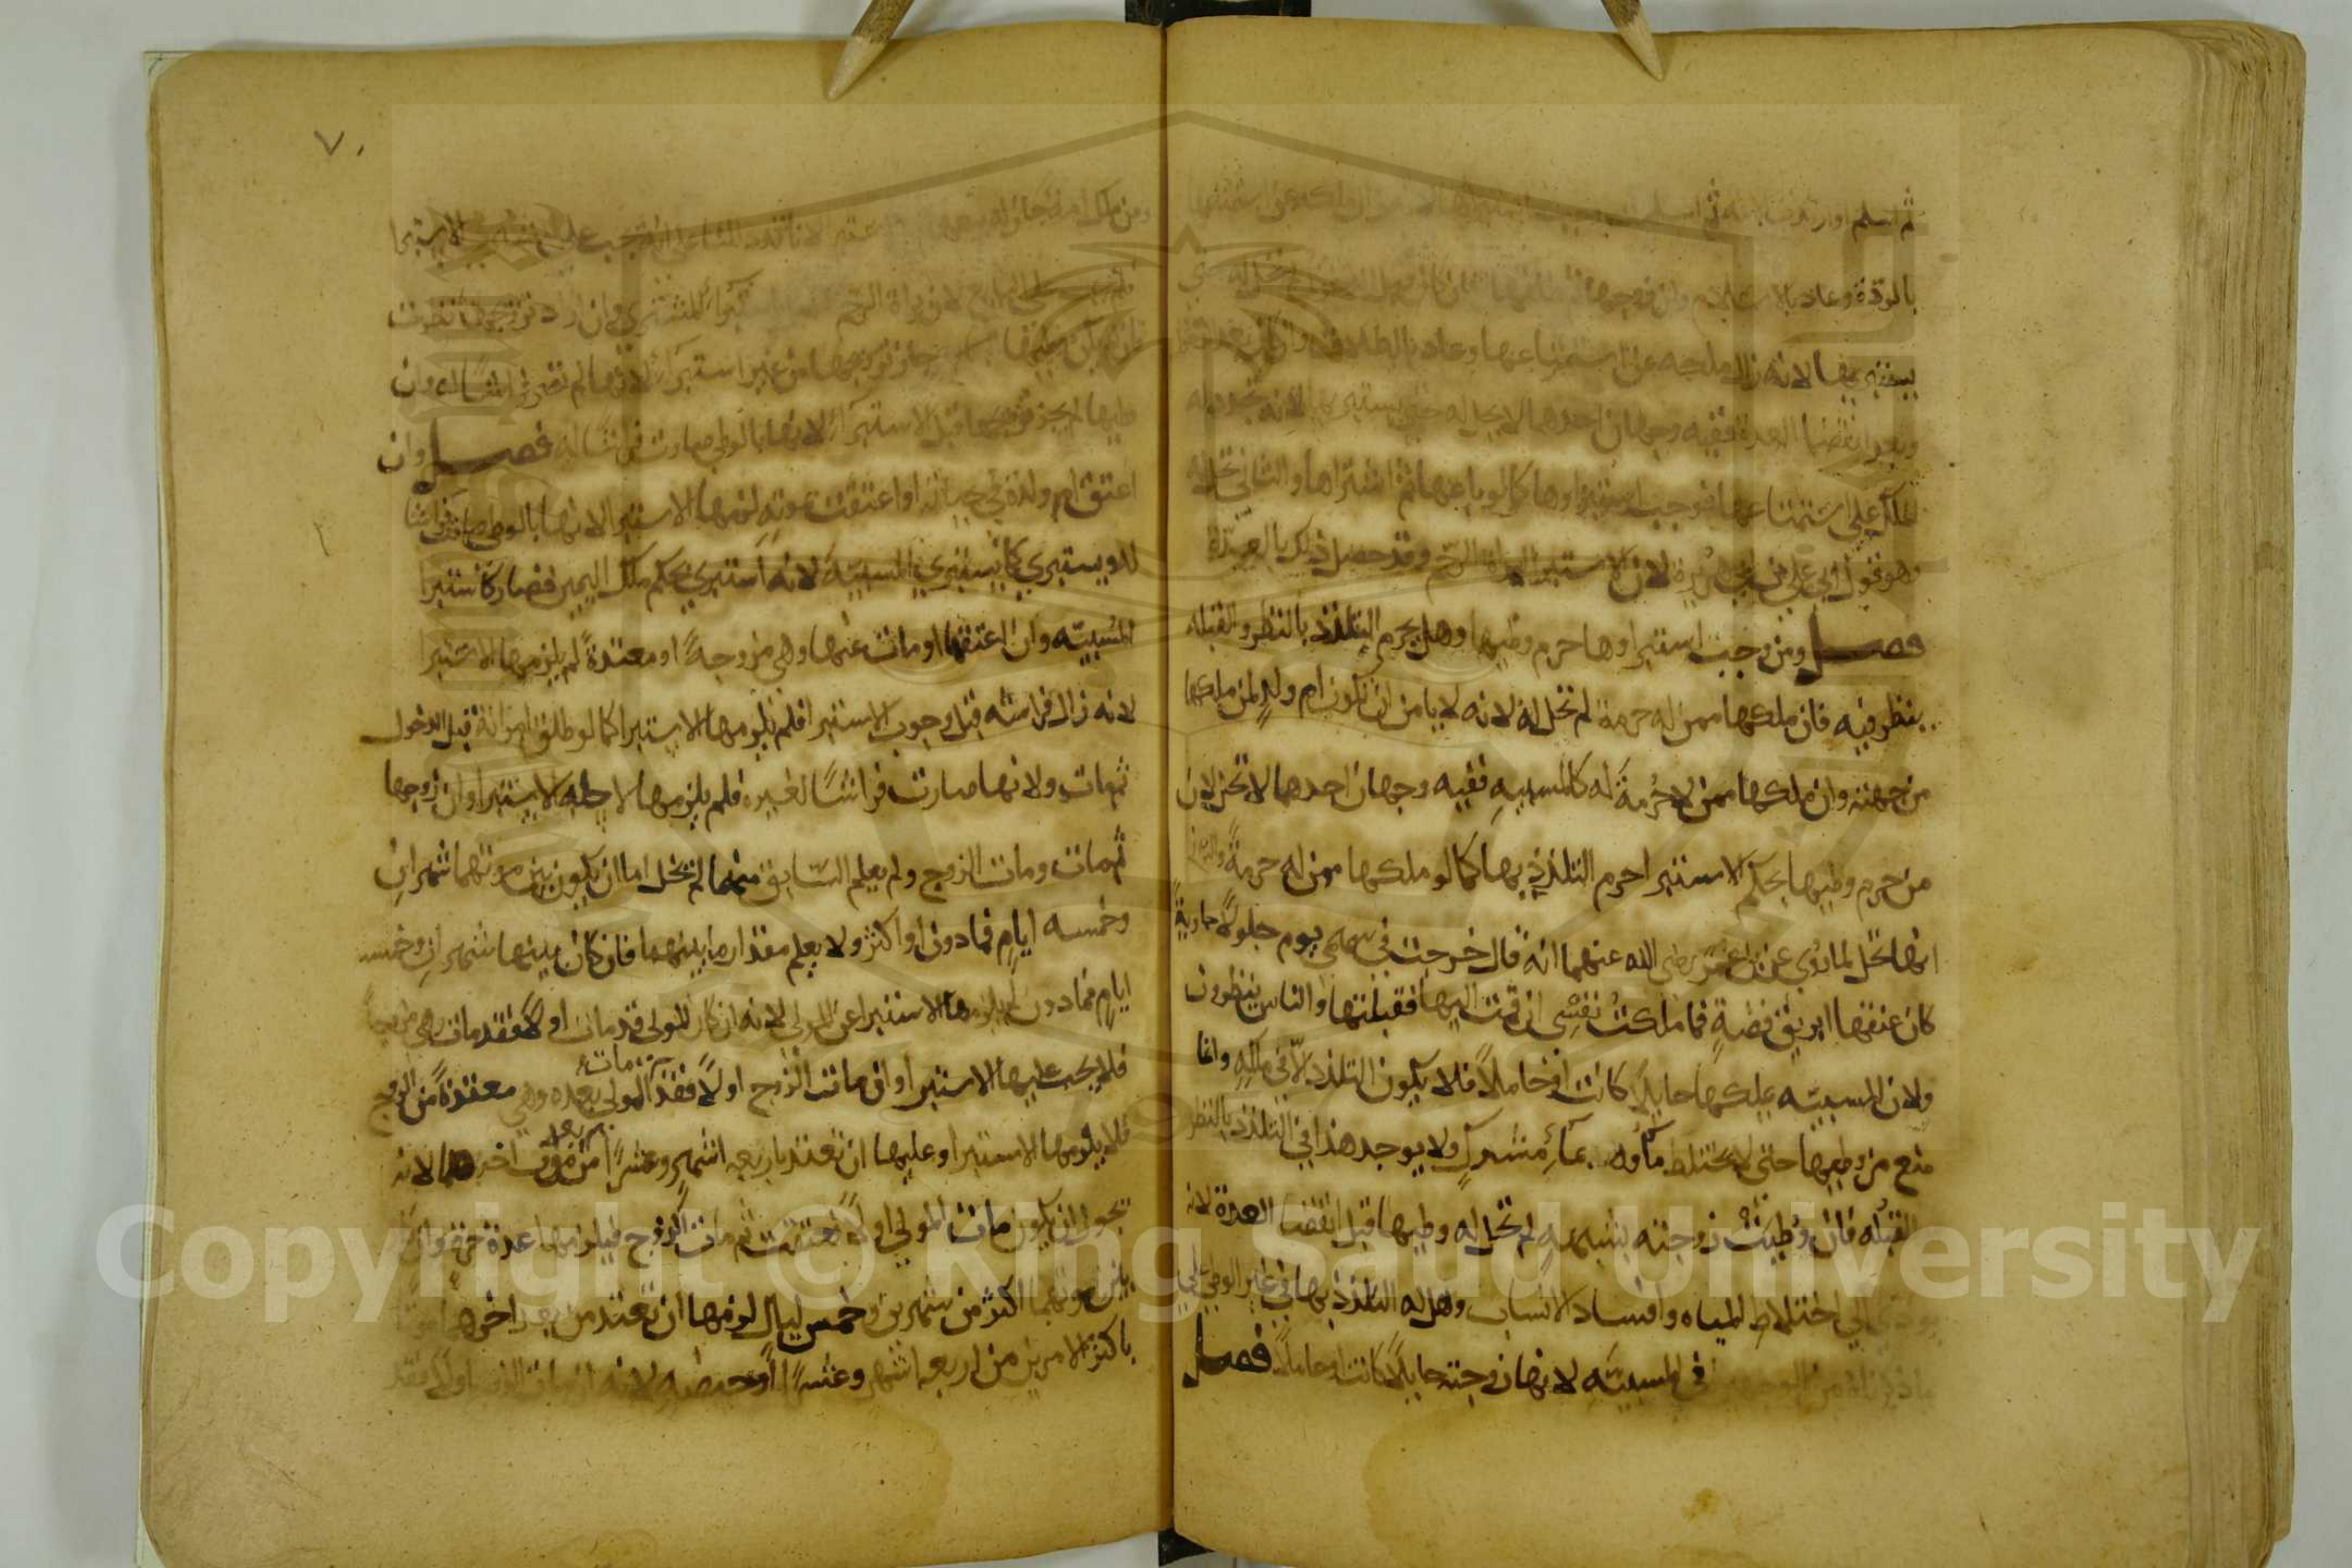 ثم اسلم او ارتدت الامة ثم اسلمت
بالردة وعاد بالاسلام وان زوجها ثم طلقها فان كان قبل الدخول لم تحل له حتى
يستبريها لانه زال ملكه عن استمتاعها وعاد بالطلاق وان كان بعد الدخول
وبعد انقضا العدة ففيه وجهان احدهما لا تحل له حتى يستبريها لانه تجدد له
الملك على استمتاعها فوجب استبراوها كما لو باعها ثم اشتراها والثاني تحل له
وهو قول ابي علي بن ابي هريره لان الاستبرا لبراة الرحم وقد حصل ذلك بالعدة
فصل ومن وجب استبراوها حرم وطيها وهل يحرم التلذذ بالنظر والقبله
ينظر فيه فان ملكها ممن له حرمة لم تحل له لانه لا يامن ان تكون ام ولد لمن ملكها
من جهته وان ملكها ممن لا حرمة له كالمسبيه ففيه وجهان احدهما لا تحل لان
من حرم وطيها بحكم الاستبرا حرم التلذذ بها كما لو ملكها ممن له حرمة والثاني
انها تحل لما روي عن ابن عمر رضي الله عنهما انه قال خرجت في سهمي يوم جلولا جارية
كان عنقها ابريق فضة فما ملكت نفسي ان قمت اليها فقبلتها والناس ينظرون
ولان المسبيه يملكها حايلا كانت او حاملا فلا يكون التلذذ الا في ملكه وانما
منع من وطيها حتى لا يختلط ماوه بماء مشرك ولا يوجد هذا في التلذذ بالنظر
والقبله فان وطيت زوجته بشبهه لم تحل له وطيها قبل انقضا العدة لانه
يودي الي اختلاط المياه وافساد الانساب وهل له التلذذ بها في غير الوطي علي
ما ذكرناه من الوجهين في المسبيه لانها زوجته حايلا كانت او حاملا فصل
٧٠
ومن ملك امة جاز له بيعها قبل
لان براة الرحم
جاز تزويجها من غير استبراء لانها لم تصر فراشا له وان
وطيها لم يجز تزويجها قبل الاستبراء لانها بالوطي صارت فراشا له فصل وان
اعتق ام ولده في حياته او اعتقت بموته لزمها الاستبرا لانها بالوطي صارت فراشا
له ويستبري كما يستبري المسبيه لانه استبري بحكم ملك اليمين فصار كاستبرا
المسبيه وان اعتقها او مات عنها وهي مزوجة او معتدة لم يلزمها الاستبرا
لانه زال فراشه قبل وجوب الاستبرا فلم يلزمها الاستبرا كما لو طلق امراته قبل الدخول
ثم مات ولانها صارت فراشا لغيره فلم يلزمها لاجله الاستبرا وان زوجها
ثم مات ومات الزوج ولم يعلم السابق منهما لم تخل اما ان يكون بين موتهما شهران
وخمسه ايام فما دون او اكثر ولا يعلم مقدار ما بينهما فان كان بينهما شهران وخمسه
ايام فما دون لم يلزمها الاستبرا عن المولى لانه ان كان المولى قد مات اولا فقد مات وهي مزوجة
فلا يجب عليها الاستبرا وان مات الزوج اولا فقد مات المولى بعده وهي معتدة من الزوج
فلا يلزمها الاستبرا وعليها ان تعتد باربعه اشهر وعشرا من بعد موت اخرهما لانه
يجوز ان يكون مات المولي اولا فعتقت ثم مات الزوج فيلزمها عدة حرة وان كان
بين موتهما اكثر من شهرين وخمس ليال لزمها ان تعتد من بعد اخرهما موتا
باكثر الامرين من اربعه اشهر وعشرا او حيضه لانه ان مات الزوج اولا فقد
Copyright © King Saud University